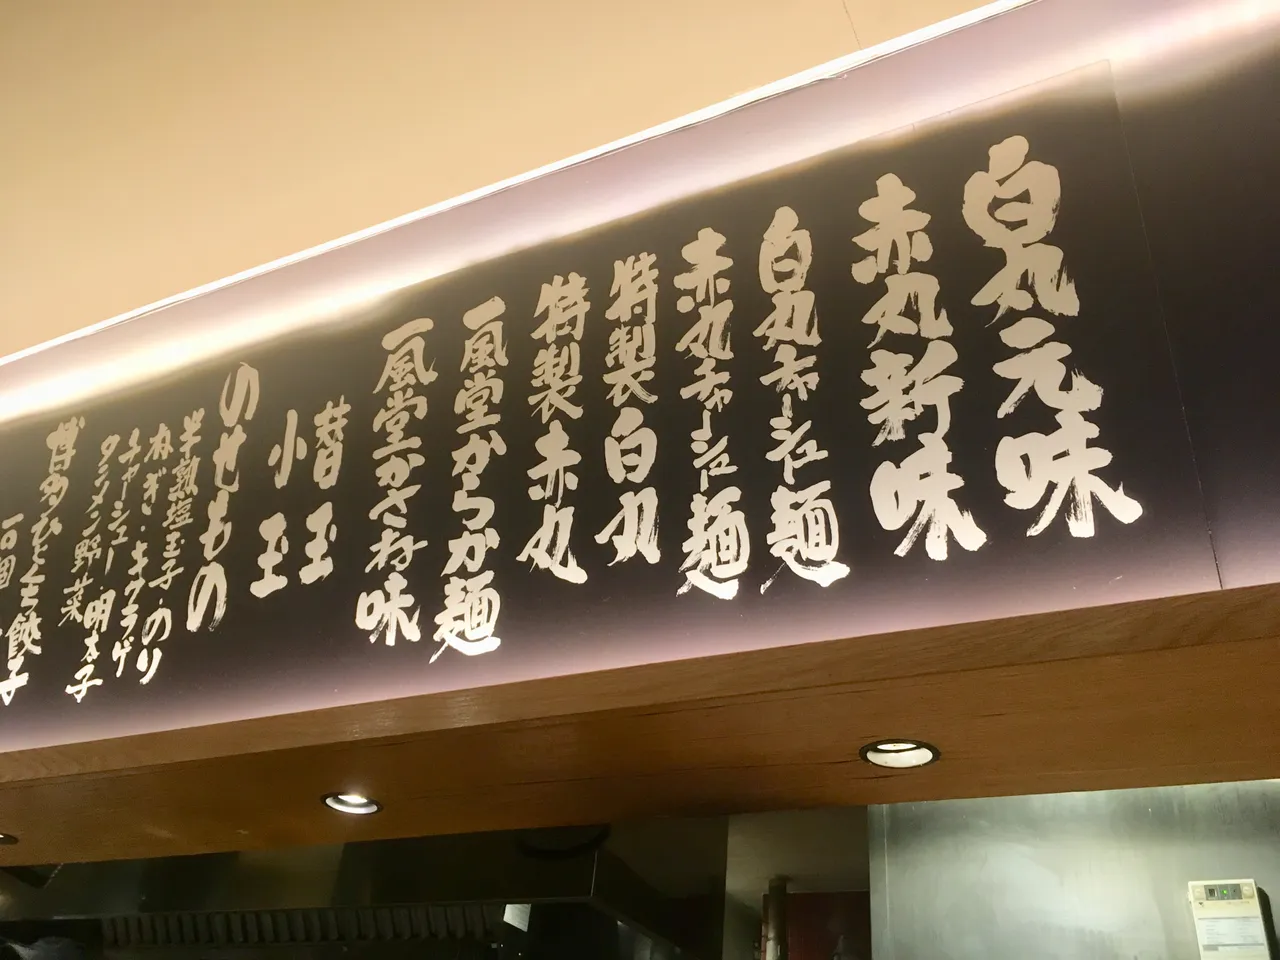 白丸元味
赤丸新味
白丸チャーシュー麺
赤丸チャーシュー麺
特製白丸
特製赤丸
一風堂からか麺
一風堂かさね味
替玉
小玉
のせもの
半熟塩玉子・のり
ねぎ・キクラゲ
チャーシュー・明太子
タンメン野菜
博多ひとくち餃子